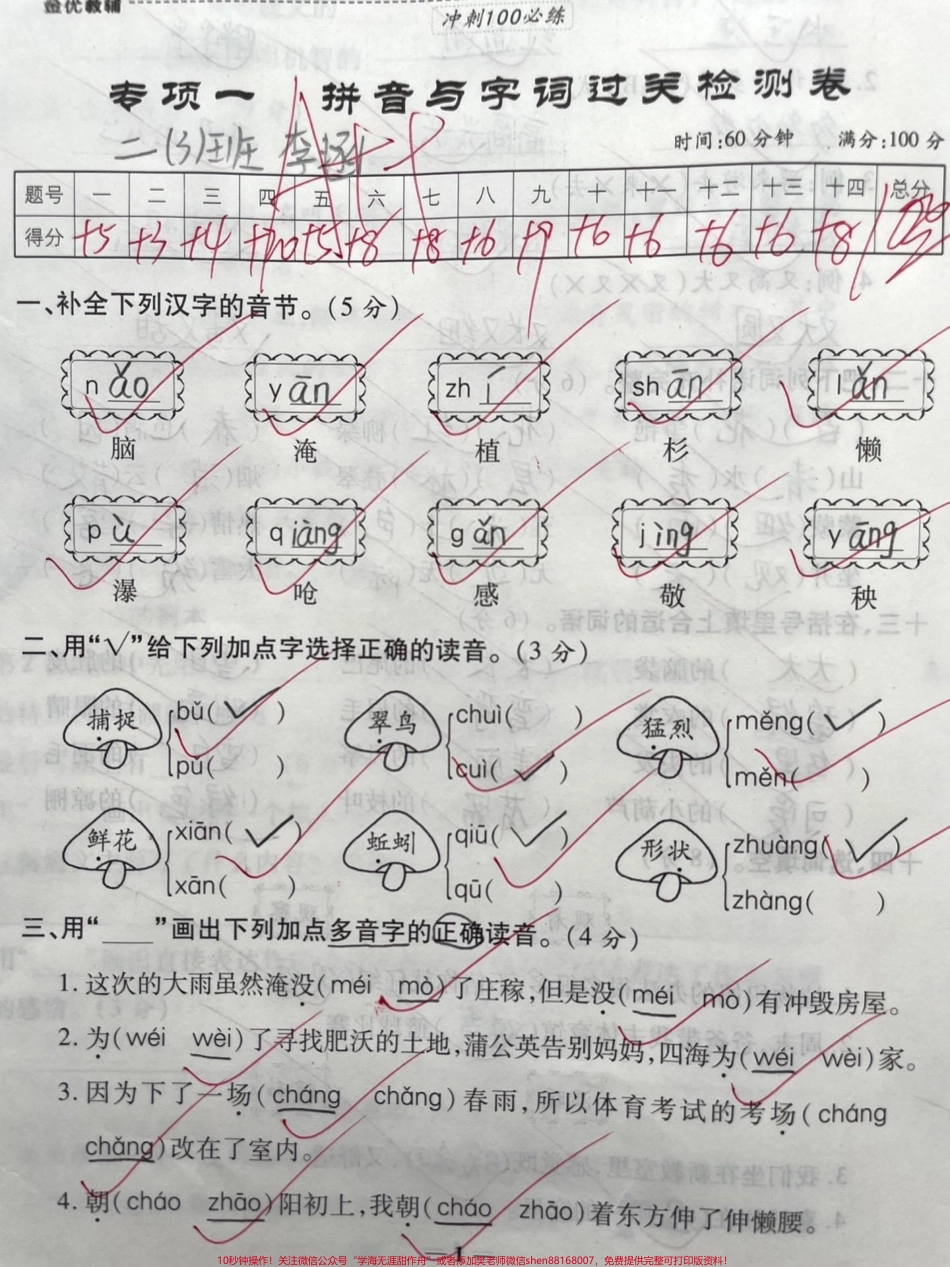 金优教辅
冲刺100必练
专项一 拼音与字词过关检测卷
二(3)班 李涵
时间:60分钟 满分:100分
题号 一 二 三 四 五 六 七 八 九 十 十一 十二 十三 十四 总分
得分 +5 +3 +4 +20 +5 +8 +8 +6 +9 +6 +6 +6 +6 +8
一、补全下列汉字的音节。(5分)
nǎo yān zhí shān lǎn
脑 淹 植 杉 懒
pù qiāng gǎn jìng yāng
瀑 呛 感 敬 秧
二、用“√”给下列加点字选择正确的读音。(3分)
捕捉 bǔ(√) 翠鸟 chuì( ) 猛烈 měng(√)
pǔ( ) cuì(√) měn( )
鲜花 xiān(√) 蚯蚓 qiū(√) 形状 zhuàng(√)
xān( ) qū( ) zhàng( )
三、用“____”画出下列加点多音字的正确读音。(4分)
1. 这次的大雨虽然淹没(méi mò)了庄稼,但是没(méi mò)有冲毁房屋。
2. 为(wéi wèi)了寻找肥沃的土地,蒲公英告别妈妈,四海为(wéi wèi)家。
3. 因为下了一场(cháng chǎng)春雨,所以体育考试的考场(cháng
chǎng)改在了室内。
4. 朝(cháo zhāo)阳初上,我朝(cháo zhāo)着东方伸了伸懒腰。
— 1 —
10秒钟操作！关注微信公众号“学海无涯甜作舟”或者添加樊老师微信shen88168007，免费提供完整可打印版资料！